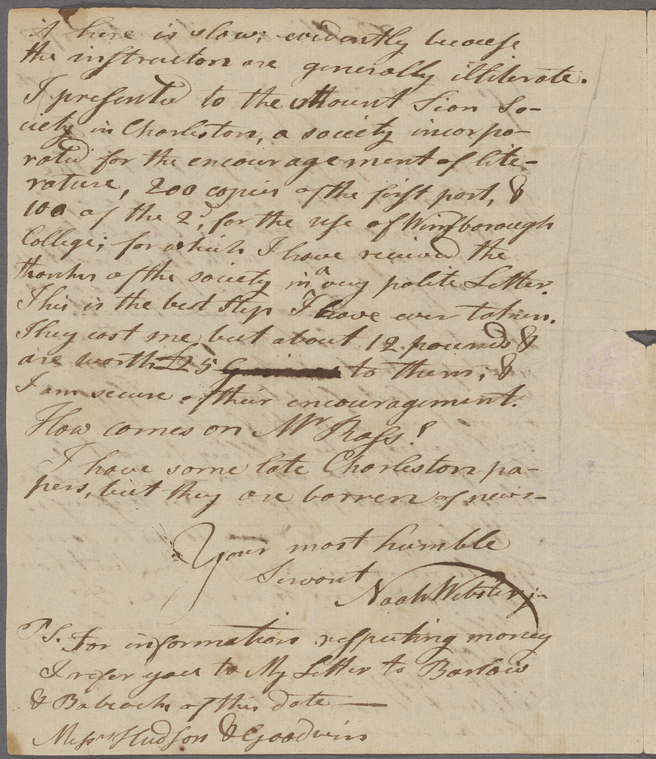 & here is slow; evidently because
the instructors are generally illiterate.
I presented to the Mount Sion So-
ciety in Charleston, a society incorpo-
rated for the encouragement of lite-
rature, 200 copies of the first part, &
100 of the 2d, for the use of Winsborough
College; for which I have received the
thanks of the society in a very polite Letter.
This is the best step I have ever taken.
They cost me but about 12 pounds &
are worth £25 to them; &
I am secure of their encouragement.
How comes on Mr Ross?
I have some late Charleston pa-
pers, but they are barren of news—
Your most humble
Servant
Noah Webster jr
PS. For information respecting money
I refer you to My Letter to Barlow
& Babcock of this date —
Messrs Hudson & Goodwin